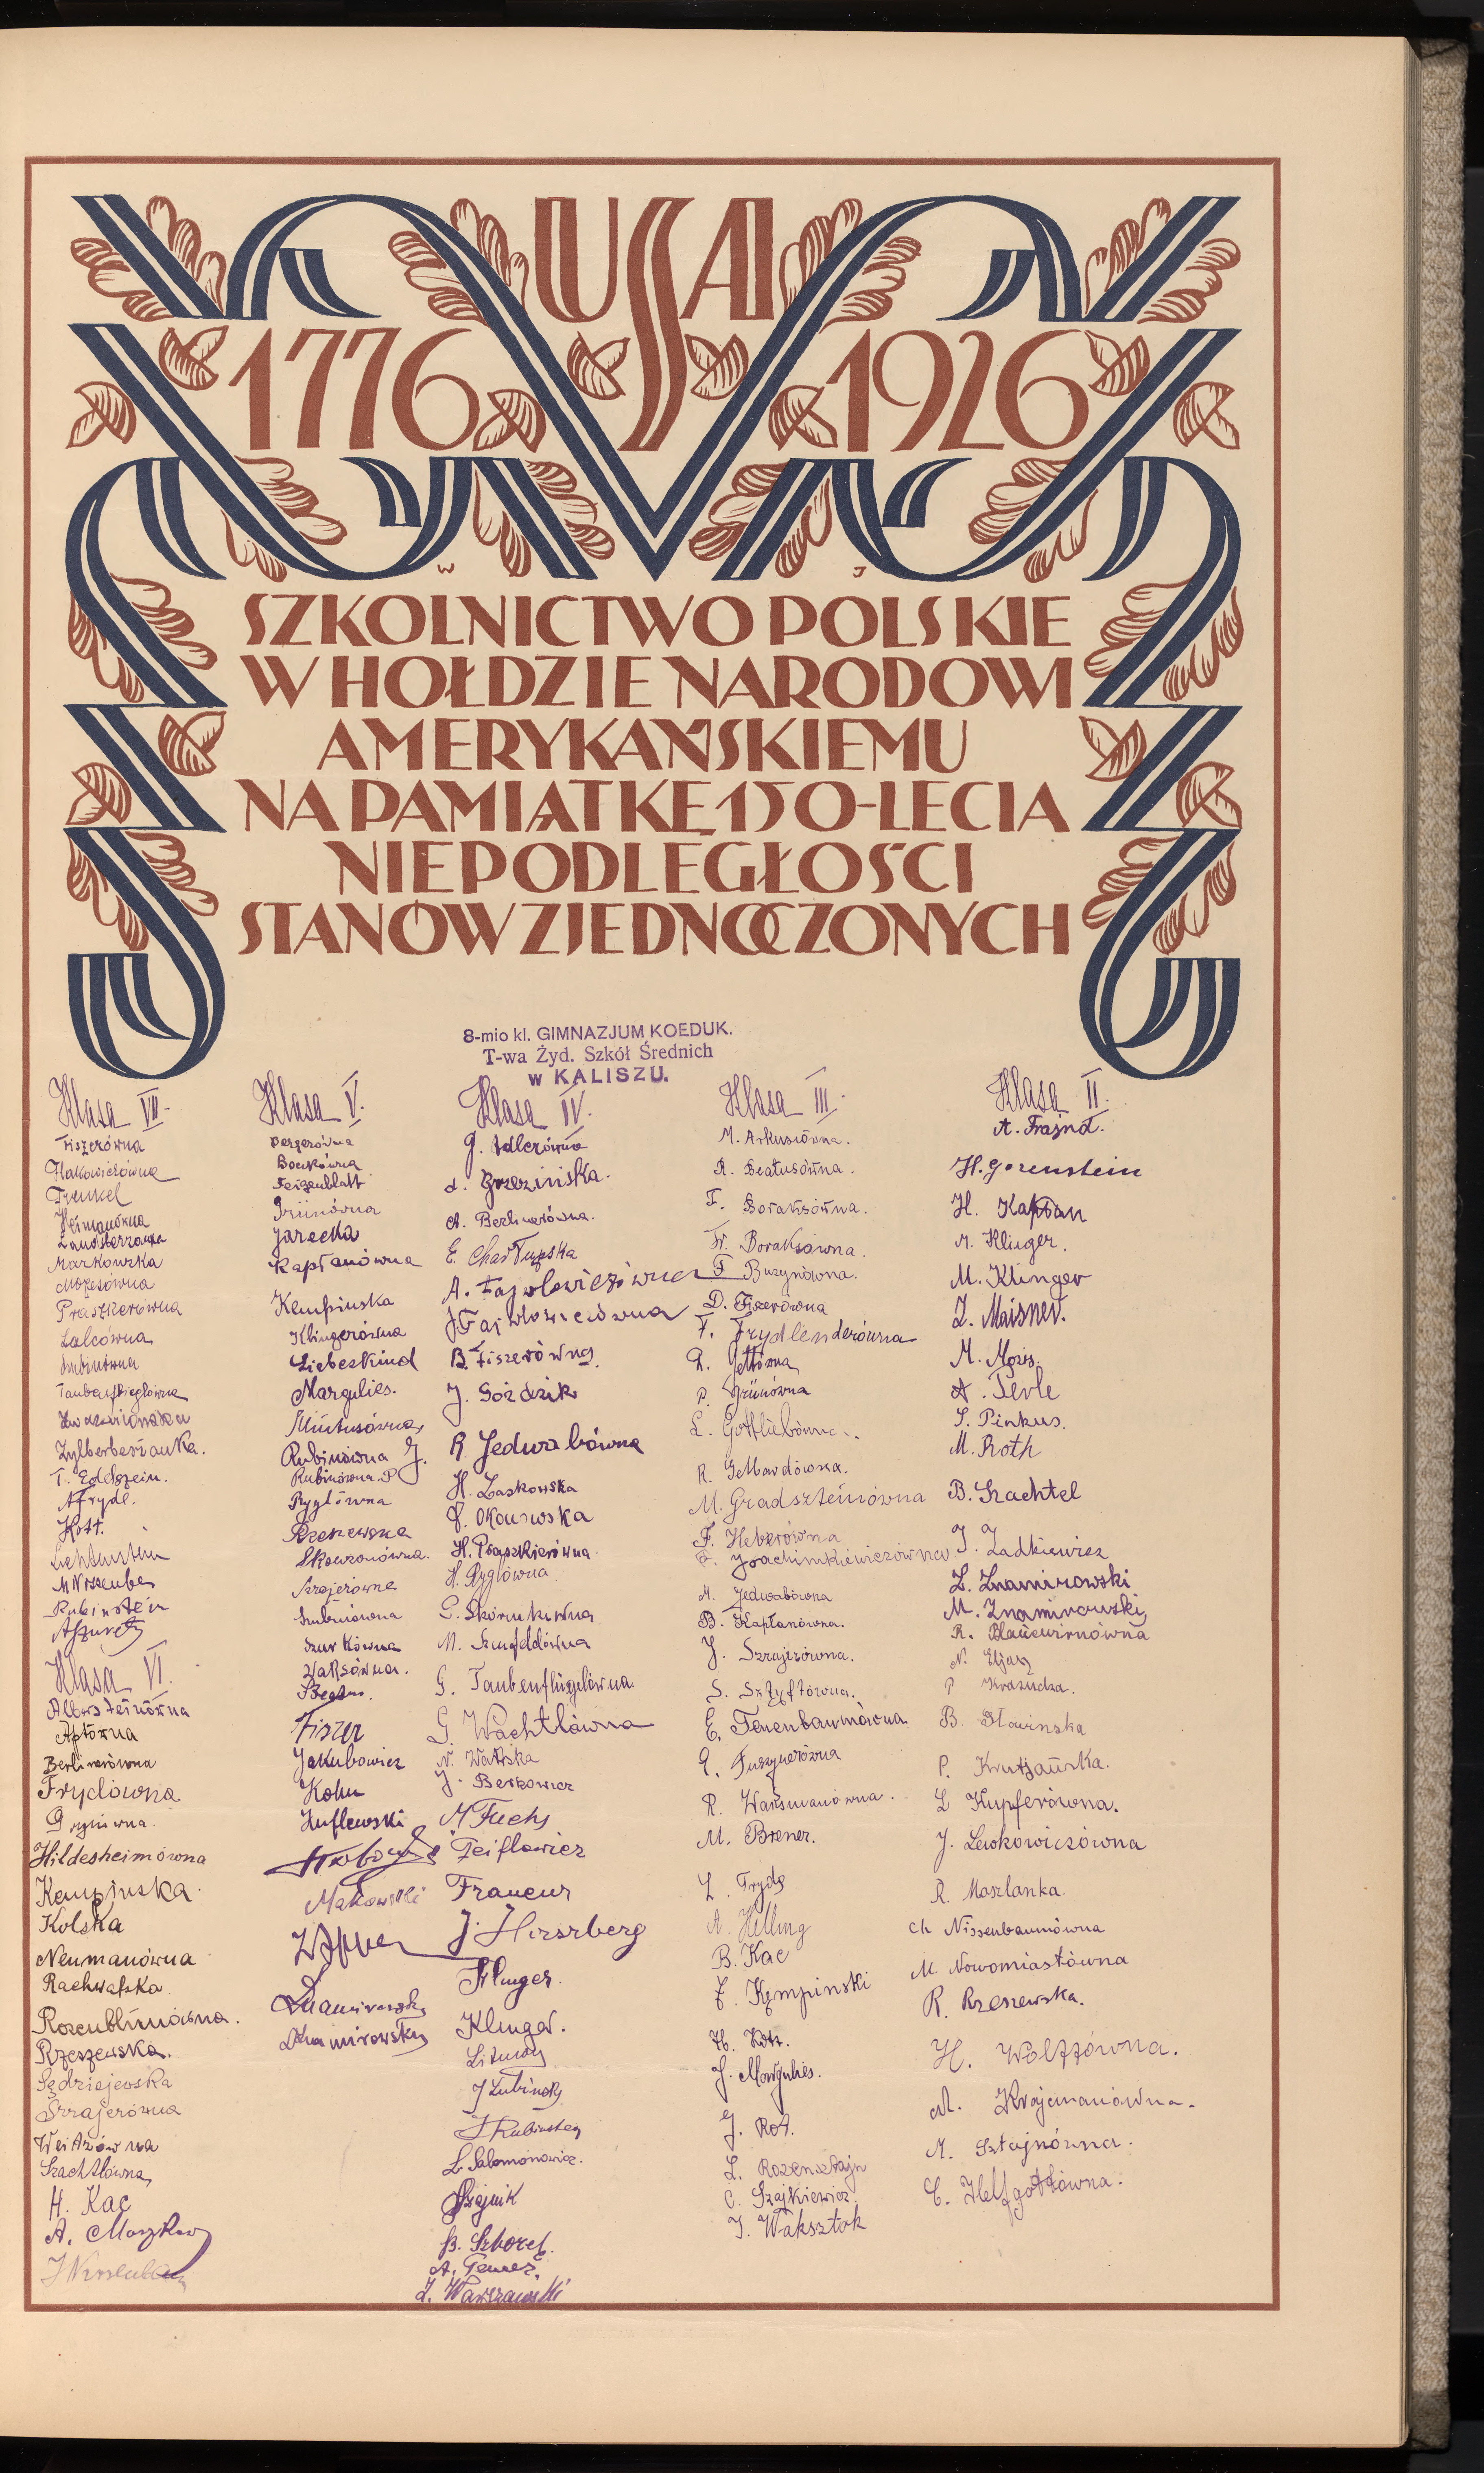 USA
1776 1926
W J
SZKOLNICTWO POLSKIE
W HOŁDZIE NARODOWI
AMERYKAŃSKIEMU
NA PAMIĄTKĘ 150-LECIA
NIEPODLEGŁOŚCI
STANÓW ZJEDNOCZONYCH
8-mio kl. GIMNAZJUM KOEDUK.
T-wa Żyd. Szkół Średnich
w KALISZU.
Klasa VII.
Fiszerówna
Frenkel
Markowska
Mozesówna
Praszkierówna
Lalcówna
Zylberberżanka.
T. Edelsztein.
A Fryde.
Kott.
Lichtenstein
Rubinstein
Klasa VI.
Albersteinówna
Aptówna
Berlinerówna
Frydówna
Hildesheimówna
Kempinska
Kolska
Neumanówna
Rachwalska
Rozenblumówna.
Rzeszewska.
Sędziejewska
Szrajerówna
Szachtlówna
H. Kac
Klasa V.
Bergerówna
Feigenblatt
Grünówna
Jarecka
Kapłanówna
Kempinska
Klingerówna
Liebeskind
Margulies.
Rubinówna J.
Rubinówna. P
Ryglówna
Rzeszewska
Skowronówna.
Szrajerówna
Szubinówna
Szurkówna
Fiszer
Jakubowicz
Kohn
Kuflewski
Makowski
Znamirowski
Znamirowski
Klasa IV.
G. Adlerówna
A. Brzezińska.
A. Berlinerówna.
E. Charłupska
A. Fajwlowiczówna
J. Fajwlowiczówna
B. Fiszerówna
J. Goździk
R. Jedwabówna
H. Laskowska
H. Praszkierówna.
H. Ryglówna
G. Taubenfliglówna.
G. Wachtlówna
J. Berkowicz
M Fuchs
Feiflowicz
Francuz
J. Hirszberg
Klinger.
Klinger.
J Lubinski
J Rubinstein
L. Salomonowicz.
B. Szhorek.
Z. Warszawski
Klasa III.
M. Arkusiówna.
R. Beatusówna.
F. Boraksówna.
Fr. Boraksówna.
F Buzynówna.
D. Fiszerówna
F. Frydlenderówna
R. Gettówna
P. Grünówna
L. Gottliebówna.
R. Gelbardówna.
M. Gradszteinówna
F. Heberówna
F. Joachimkiewiczówna
A. Jedwabówna
B. Kapłanówna.
J. Szrajerówna.
S. Sztyftówna.
E. Tenenbaumówna
R. Waksmanówna.
M. Brener.
L. Fryde
A. Helling
B. Kac
F. Kempinski
H. Kott.
J. Margulies.
J. Rot.
L. Rozensztajn
C. Szajkiewicz.
J. Waksztok
Klasa II.
A. Frajnd.
H. Gorenstein
H. Kapłan
M. Klinger.
M. Klinger
L. Maisner.
M. Mozes.
A. Perle
S. Pinkus.
M. Roth
B. Szachtel
J. Zadkiewicz
Z. Znamirowski
M. Znamirowski
R. Blaucwirnówna
N. Eljasz
B. Sławinska
L Kupferówna.
J. Lewkowiczówna
R. Maszlanka.
Ch Nissenbaumówna
M. Nowomiastówna
R. Rzeszewska.
H. Wolffówna.
M. Krajcmanówna.
M. Sztajnówna.
C. Helfgottówna.